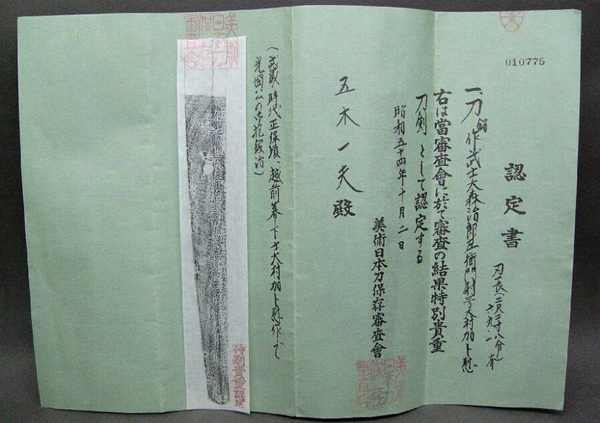 010775
認定書
一、刀 銘 作武士大森治郎左衛門剣 大村加卜慰
刃長 二尺二寸八分
右は當審査會に於て審査の結果特別貴重
刀剣として認定する
昭和五十四年十月二日
美術日本刀保存審査會
五木一夫殿
(武蔵 時代正保頃、越前幕下士大村加卜慰作にて
光圀公の
特別貴重